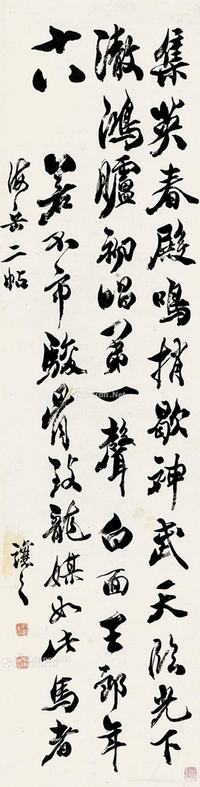 集英春殿鳴捎歇神武天臨光下
澈鴻臚初唱第一聲白面王郎年
十八 若不市駿骨致龍媒如此馬者
海岳二帖
讓之